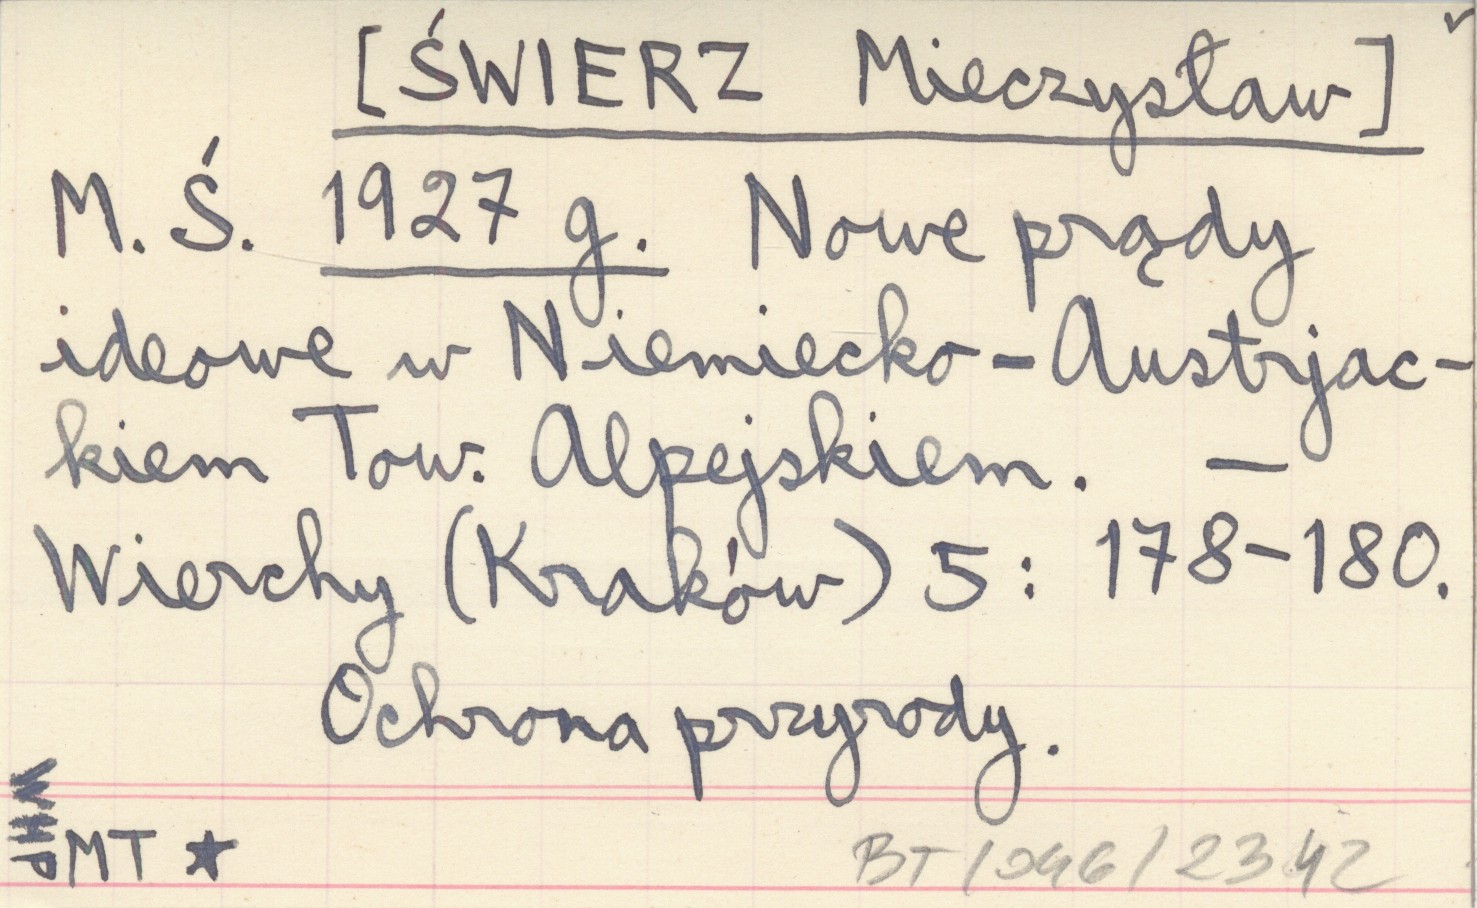 [ŚWIERZ Mieczysław]
M. Ś. 1927 g. Nowe prądy
ideowe w Niemiecko-Austrjac-
kiem Tow. Alpejskiem. —
Wierchy (Kraków) 5: 178-180.
Ochrona przyrody.
WHP
MT ★
BT/046/2342